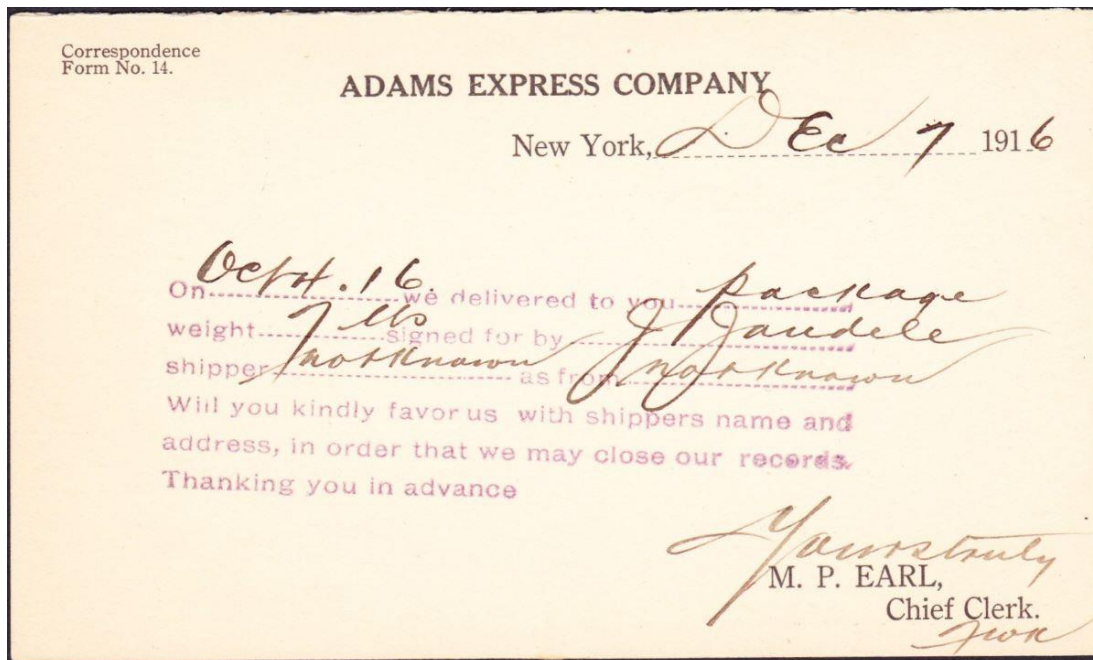 Correspondence
Form No. 14.
ADAMS EXPRESS COMPANY
New York, Dec 7 1916
On Oct 4. 16. we delivered to you package
weight 7 lbs signed for by J
shipper not Known as from not Known
Will you kindly favor us with shippers name and
address, in order that we may close our records.
Thanking you in advance
Yours truly
M. P. EARL,
Chief Clerk.